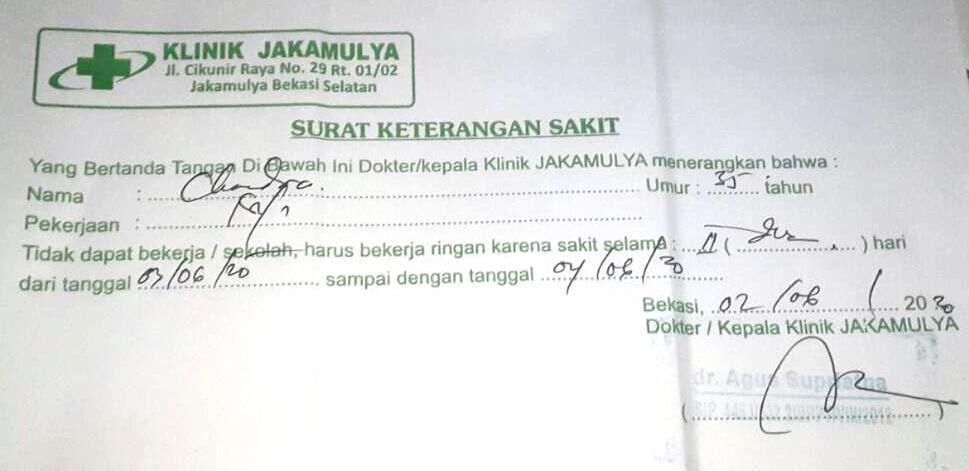 KLINIK JAKAMULYA
Jl. Cikunir Raya No. 29 Rt. 01/02
Jakamulya Bekasi Selatan
SURAT KETERANGAN SAKIT
Yang Bertanda Tangan Di Bawah Ini Dokter/kepala Klinik JAKAMULYA menerangkan bahwa :
Nama : Umur : 35 tahun
Pekerjaan :
Tidak dapat bekerja / sekolah, harus bekerja ringan karena sakit selama : II ( ) hari
dari tanggal 03/06/20 sampai dengan tanggal 04/06/
Bekasi, 02/06/ 20
Dokter / Kepala Klinik JAKAMULYA
dr. Agus
( )